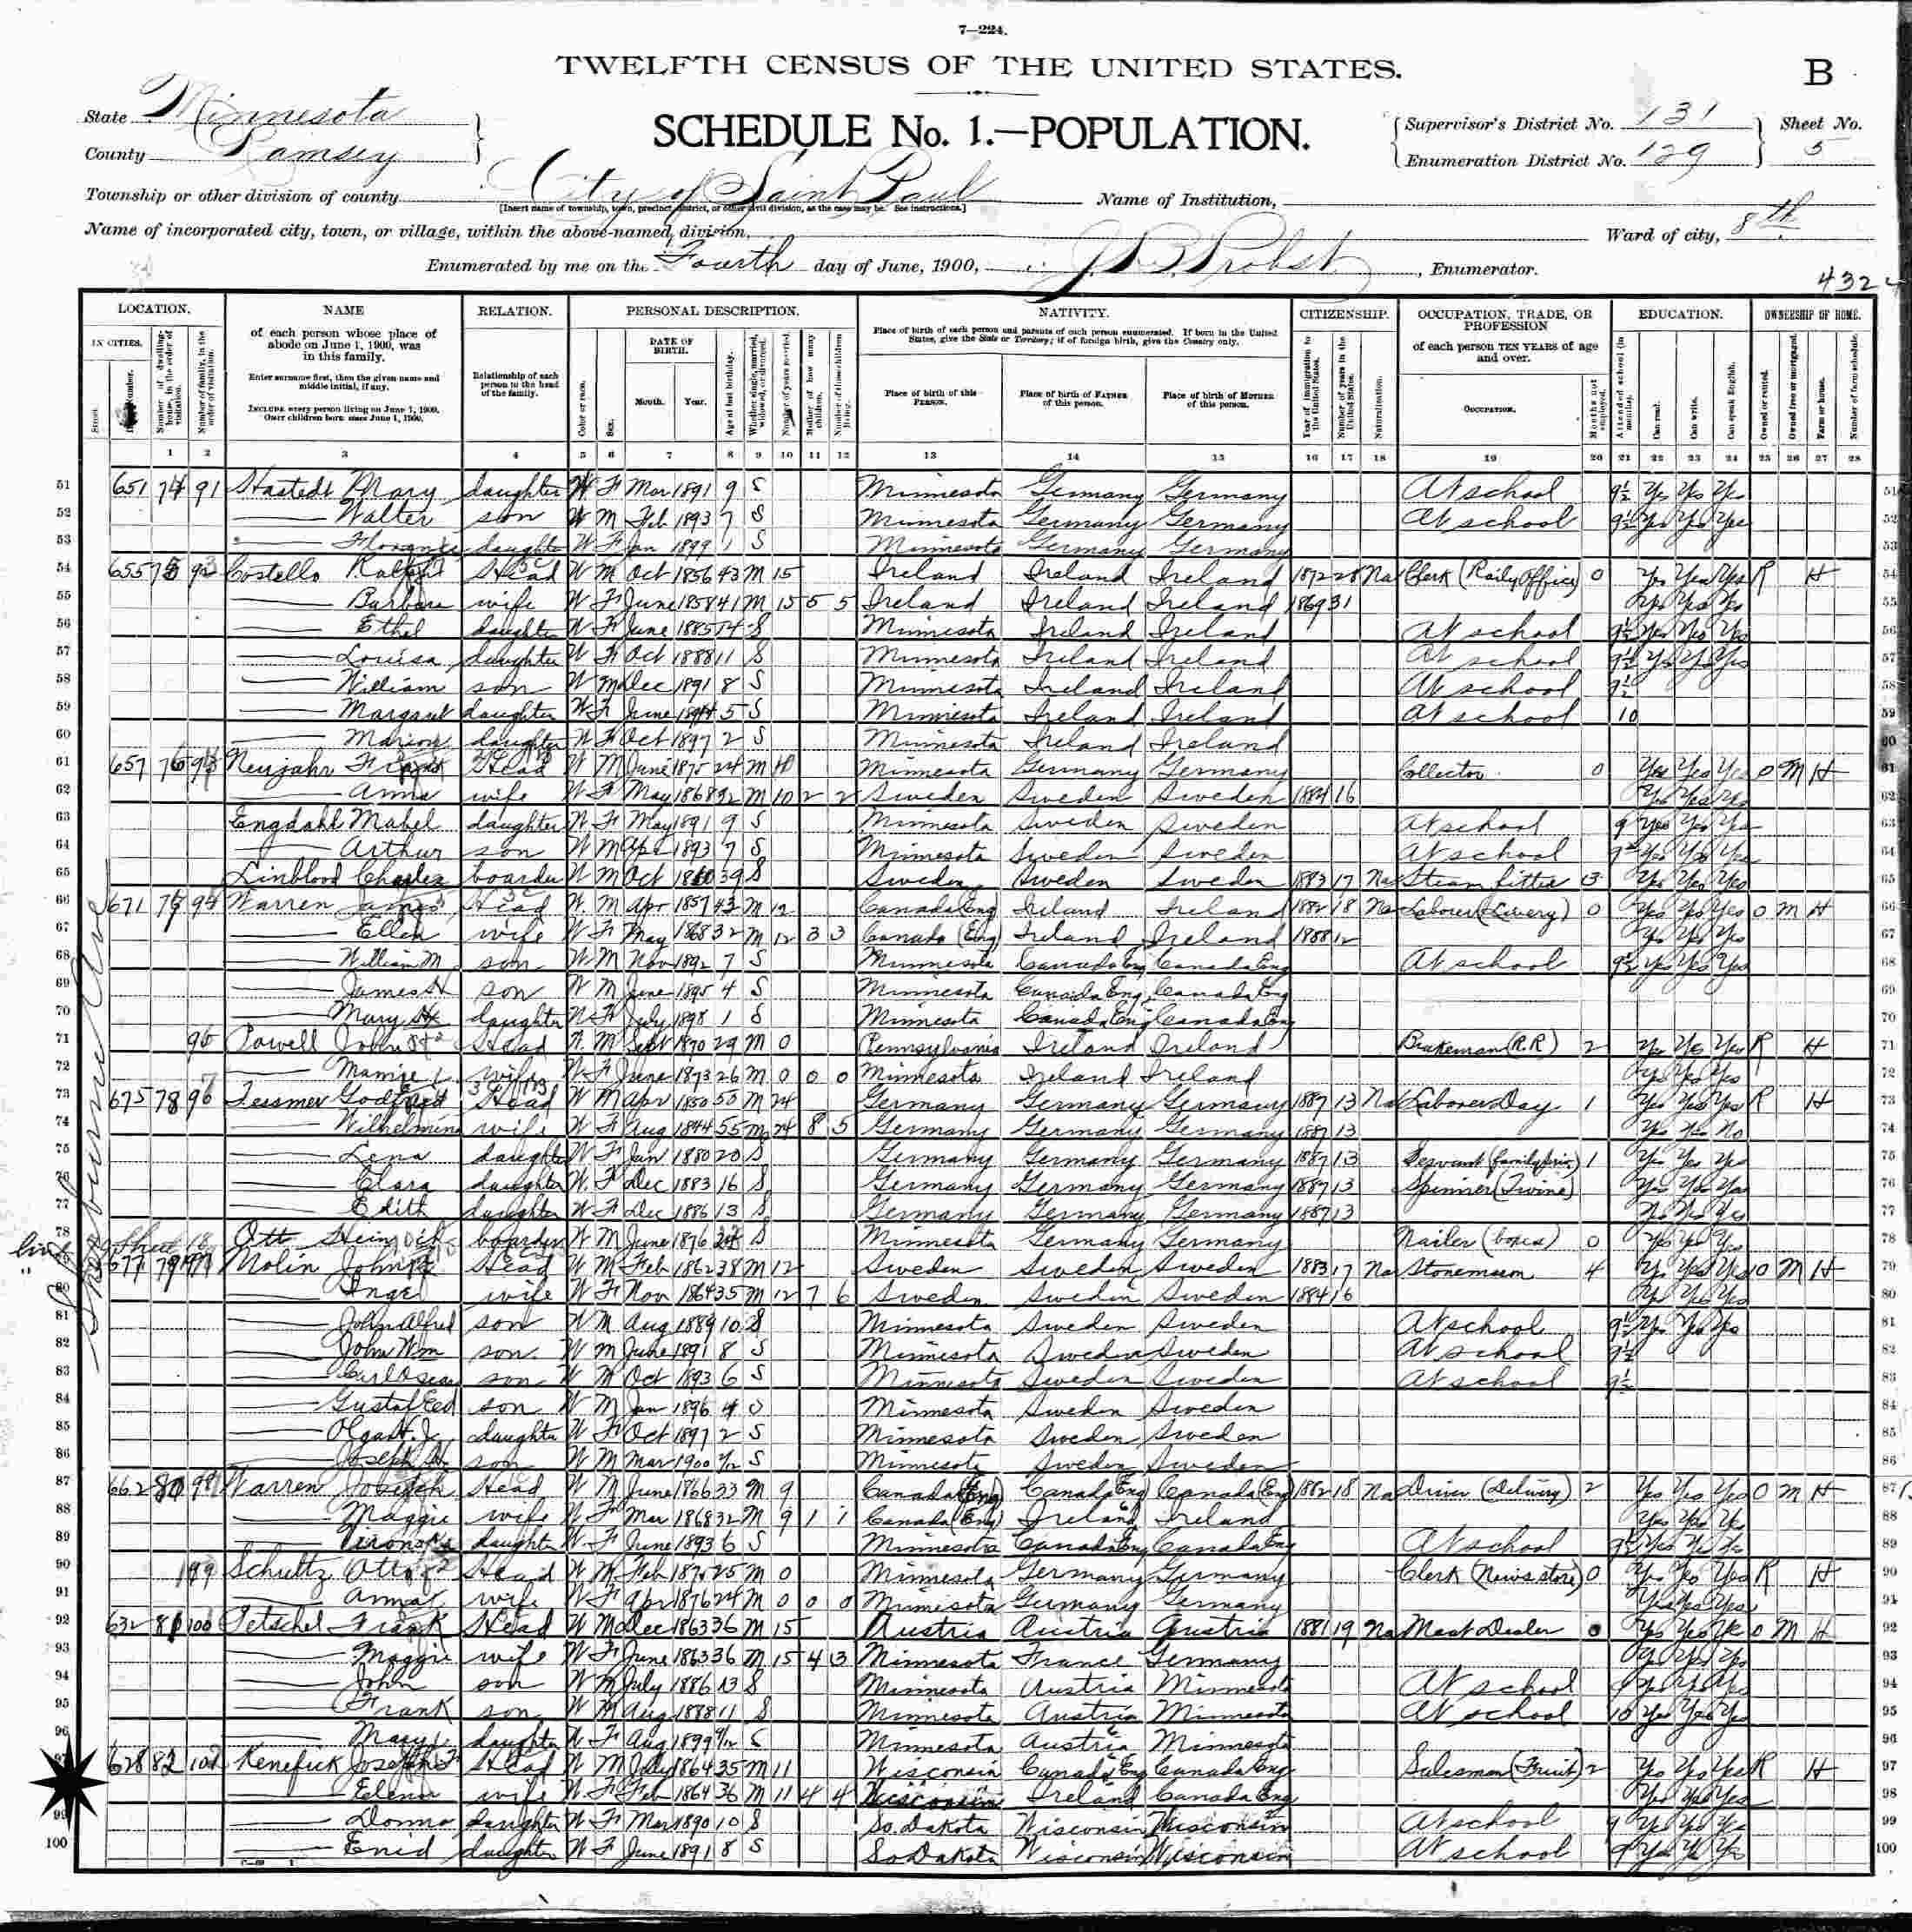 7—224.
TWELFTH CENSUS OF THE UNITED STATES.
B
State Minnesota
County Ramsey
SCHEDULE No. 1.—POPULATION.
Supervisor's District No. 131
Enumeration District No. 129
Sheet No. 5
Township or other division of county City of Saint Paul
[Insert name of township, town, precinct, district, or other civil division, as the case may be. See instructions.]
Name of Institution,
Name of incorporated city, town, or village, within the above-named division,
Ward of city, 8th
Enumerated by me on the Fourth day of June, 1900, J. B. Probst, Enumerator.
432
LOCATION. NAME RELATION. PERSONAL DESCRIPTION. NATIVITY. CITIZENSHIP. OCCUPATION, TRADE, OR PROFESSION EDUCATION. OWNERSHIP OF HOME.
IN CITIES.
of each person whose place of abode on June 1, 1900, was in this family.
Enter surname first, then the given name and middle initial, if any.
INCLUDE every person living on June 1, 1900. OMIT children born since June 1, 1900.
Relationship of each person to the head of the family.
DATE OF BIRTH.
Month. Year.
Place of birth of each person and parents of each person enumerated. If born in the United States, give the State or Territory; if of foreign birth, give the Country only.
Place of birth of this PERSON. Place of birth of FATHER of this person. Place of birth of MOTHER of this person.
of each person TEN YEARS of age and over.
OCCUPATION.
1 2 3 4 5 6 7 8 9 10 11 12 13 14 15 16 17 18 19 20 21 22 23 24 25 26 27 28
51 651 74 91 Mary daughter W F Mar 1891 9 S Minnesota Germany Germany At school 9½ Yes Yes Yes 51
52 — Walter son W M Feb 1893 7 S Minnesota Germany Germany At school 9½ Yes Yes Yes 52
53 — daughter W F Jan 1899 1 S Minnesota Germany Germany 53
54 655 75 92 Costello Head W M Oct 1856 43 M 15 Ireland Ireland Ireland 1872 28 Na Clerk (Raily Office) 0 Yes Yes Yes R H 54
55 — wife W F June 1858 41 M 15 5 5 Ireland Ireland Ireland 1869 31 Yes Yes Yes 55
56 — Ethel daughter W F June 1885 14 S Minnesota Ireland Ireland At school 9½ Yes Yes Yes 56
57 — Louisa daughter W F Oct 1888 11 S Minnesota Ireland Ireland At school 9½ Yes Yes Yes 57
58 — William son W M Dec 1891 8 S Minnesota Ireland Ireland At school 9½ 58
59 — Margaret daughter W F June 1894 5 S Minnesota Ireland Ireland At school 10 59
60 — Marion daughter W F Oct 1897 2 S Minnesota Ireland Ireland 60
61 657 76 Neujahr Frank Head W M June 1875 24 M 10 Minnesota Germany Germany Collector 0 Yes Yes Yes O M H 61
62 — Anna wife W F May 1868 32 M 10 2 2 Sweden Sweden Sweden 1884 16 Yes Yes Yes 62
63 Engdahl Mabel daughter W F May 1891 9 S Minnesota Sweden Sweden At school 9 Yes Yes Yes 63
64 — Arthur son W M Apr 1893 7 S Minnesota Sweden Sweden At school Yes Yes Yes 64
65 Linblood Charles boarder W M Oct 1860 39 S Sweden Sweden Sweden 1883 17 Na Steam fitter 3 Yes Yes Yes 65
66 671 Warren James Head W M Apr 1857 43 M 12 Canada Eng Ireland Ireland 1882 18 Na Laborer (Livery) 0 Yes Yes Yes O M H 66
67 — Ellen wife W F May 1868 32 M 12 3 3 Canada (Eng) Ireland Ireland 1888 12 Yes Yes Yes 67
68 — William M son W M Nov 1892 7 S Minnesota Canada Eng Canada Eng At school 9½ Yes Yes Yes 68
69 — James H son W M June 1895 4 S Minnesota Canada Eng Canada Eng 69
70 — Mary daughter W F July 1898 1 S Minnesota Canada Eng Canada Eng 70
71 Powell John Head W M Sept 1870 29 M 0 Pennsylvania Ireland Ireland Brakeman (R.R) 2 Yes Yes Yes R H 71
72 — Mamie wife W F June 1873 26 M 0 0 0 Minnesota Ireland Ireland Yes Yes Yes 72
73 675 78 Tessmer Head W M Apr 1850 50 M 24 Germany Germany Germany 1887 13 Na Laborer Day 1 Yes Yes Yes R H 73
74 — Wilhelmina wife W F Aug 1844 55 M 24 8 5 Germany Germany Germany 1887 13 Yes Yes No 74
75 — Lena daughter W F Jan 1880 20 S Germany Germany Germany 1887 13 Servant 1 Yes Yes Yes 75
76 — Clara daughter W F Dec 1883 16 S Germany Germany Germany 1887 13 Spinner (Twine) Yes Yes Yes 76
77 — Edith daughter W F Dec 1886 13 S Germany Germany Germany 1887 13 Yes Yes Yes 77
78 Ott Heinrich boarder W M June 1876 S Minnesota Germany Germany Nailer (boxes) 0 Yes Yes Yes 78
79 677 79 Molin John Head W M Feb 1862 38 M 12 Sweden Sweden Sweden 1883 17 Na Stonemason 4 Yes Yes Yes O M H 79
80 — Inga wife W F Nov 1864 35 M 12 7 6 Sweden Sweden Sweden 1884 16 Yes Yes Yes 80
81 — John Alfred son W M Aug 1889 10 S Minnesota Sweden Sweden At school 9½ Yes Yes Yes 81
82 — John Wm son W M June 1891 8 S Minnesota Sweden Sweden At school 9½ 82
83 — Carl Oscar son W M Oct 1893 6 S Minnesota Sweden Sweden At school 9½ 83
84 — Gustaf Ed son W M Jan 1896 4 S Minnesota Sweden Sweden 84
85 — Olga daughter W F Oct 1897 2 S Minnesota Sweden Sweden 85
86 — Joseph son W M Mar 1900 S Minnesota Sweden Sweden 86
87 662 80 98 Warren Joseph Head W M June 1866 33 M 9 Canada (Eng) Canada Eng Canada (Eng) 1882 18 Na Driver (Delivery) 2 Yes Yes Yes O M H 87
88 — Maggie wife W F Mar 1868 32 M 9 1 1 Canada (Eng) Ireland Ireland Yes Yes Yes 88
89 — daughter W F June 1893 6 S Minnesota Canada Eng Canada Eng At school 9½ Yes Yes Yes 89
90 Schultz Otto Head W M Feb 1875 25 M 0 Minnesota Germany Germany Clerk (News store) 0 Yes Yes Yes R H 90
91 — Anna wife W F Apr 1876 24 M 0 0 0 Minnesota Germany Germany Yes Yes Yes 91
92 632 81 100 Petschel Frank Head W M Dec 1863 36 M 15 Austria Austria Austria 1881 19 Na Meat Dealer Yes Yes Yes O M H 92
93 — Maggie wife W F June 1863 36 M 15 4 3 Minnesota France Germany Yes Yes Yes 93
94 — John son W M July 1886 13 S Minnesota Austria Minnesota At school 9 Yes Yes Yes 94
95 — Frank son W M Aug 1888 11 S Minnesota Austria Minnesota At school 10 Yes Yes Yes 95
96 — Mary daughter W F Aug 1899 9/12 S Minnesota Austria Minnesota 96
628 82 Kenefick Joseph Head W M July 1864 35 M 11 Wisconsin Canada Eng Canada Eng Salesman (Fruit) 2 Yes Yes Yes R H 97
— wife W F Feb 1864 36 M 11 4 4 Wisconsin Ireland Canada Eng Yes Yes Yes 98
99 — Donna daughter W F Mar 1890 10 S So. Dakota Wisconsin Wisconsin At school 9 Yes Yes Yes 99
100 — Enid daughter W F June 1891 8 S So Dakota Wisconsin Wisconsin At school 9 Yes Yes Yes 100
Sherburne Ave